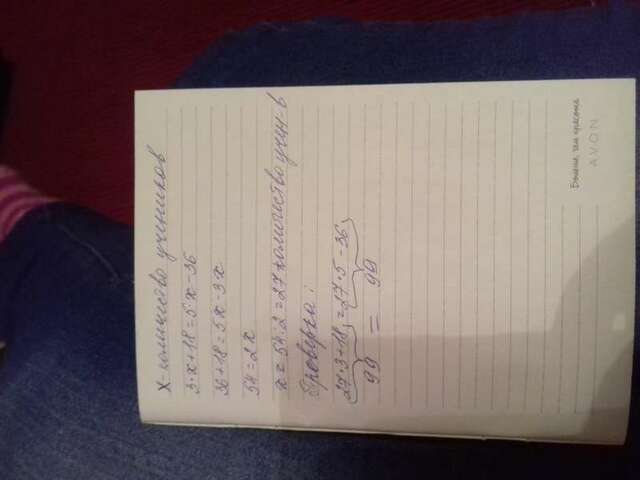 x-количество учеников
3·x+18=5·x-36
36+18=5x-3·x
54=2x
x=54:2=27 количество учен-в
Проверка:
27·3+18=27·5-36
99 = 99
Больше, чем красота
AVON